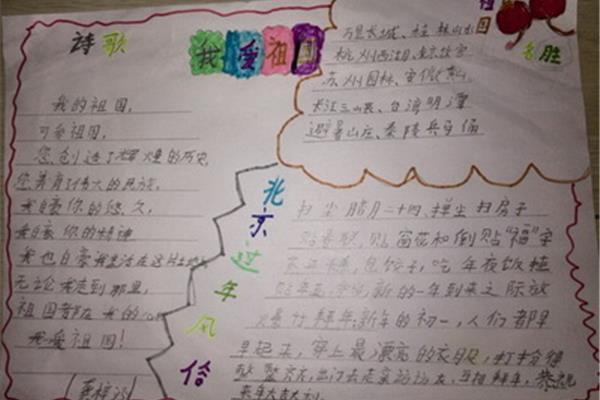 诗歌
我爱祖国
我的祖国,
可爱祖国,
您创造了辉煌的历史
您养育了伟大的民族
我自豪你的悠久,
我自豪你的精神
我也自豪我生活在这
无论我走到那里,
祖国都在我的心
我爱祖国!
国
名胜
万里长城、桂林山水
杭州西湖、
苏州园林、安徽黄山
长江三峡、台湾明潭
避暑山庄、秦陵兵马俑
北京过年风俗
扫尘 腊月二十四,掸尘扫房子
贴春联,贴窗花和倒贴“福”字
包饺子,吃年夜饭
新的一年到来之际放
爆竹 拜年,新年的初一,人们都早
早起来,穿上最漂亮的衣服,打扮得
整整齐齐,出门去走亲访友,互相拜年,恭祝
来年大吉大利